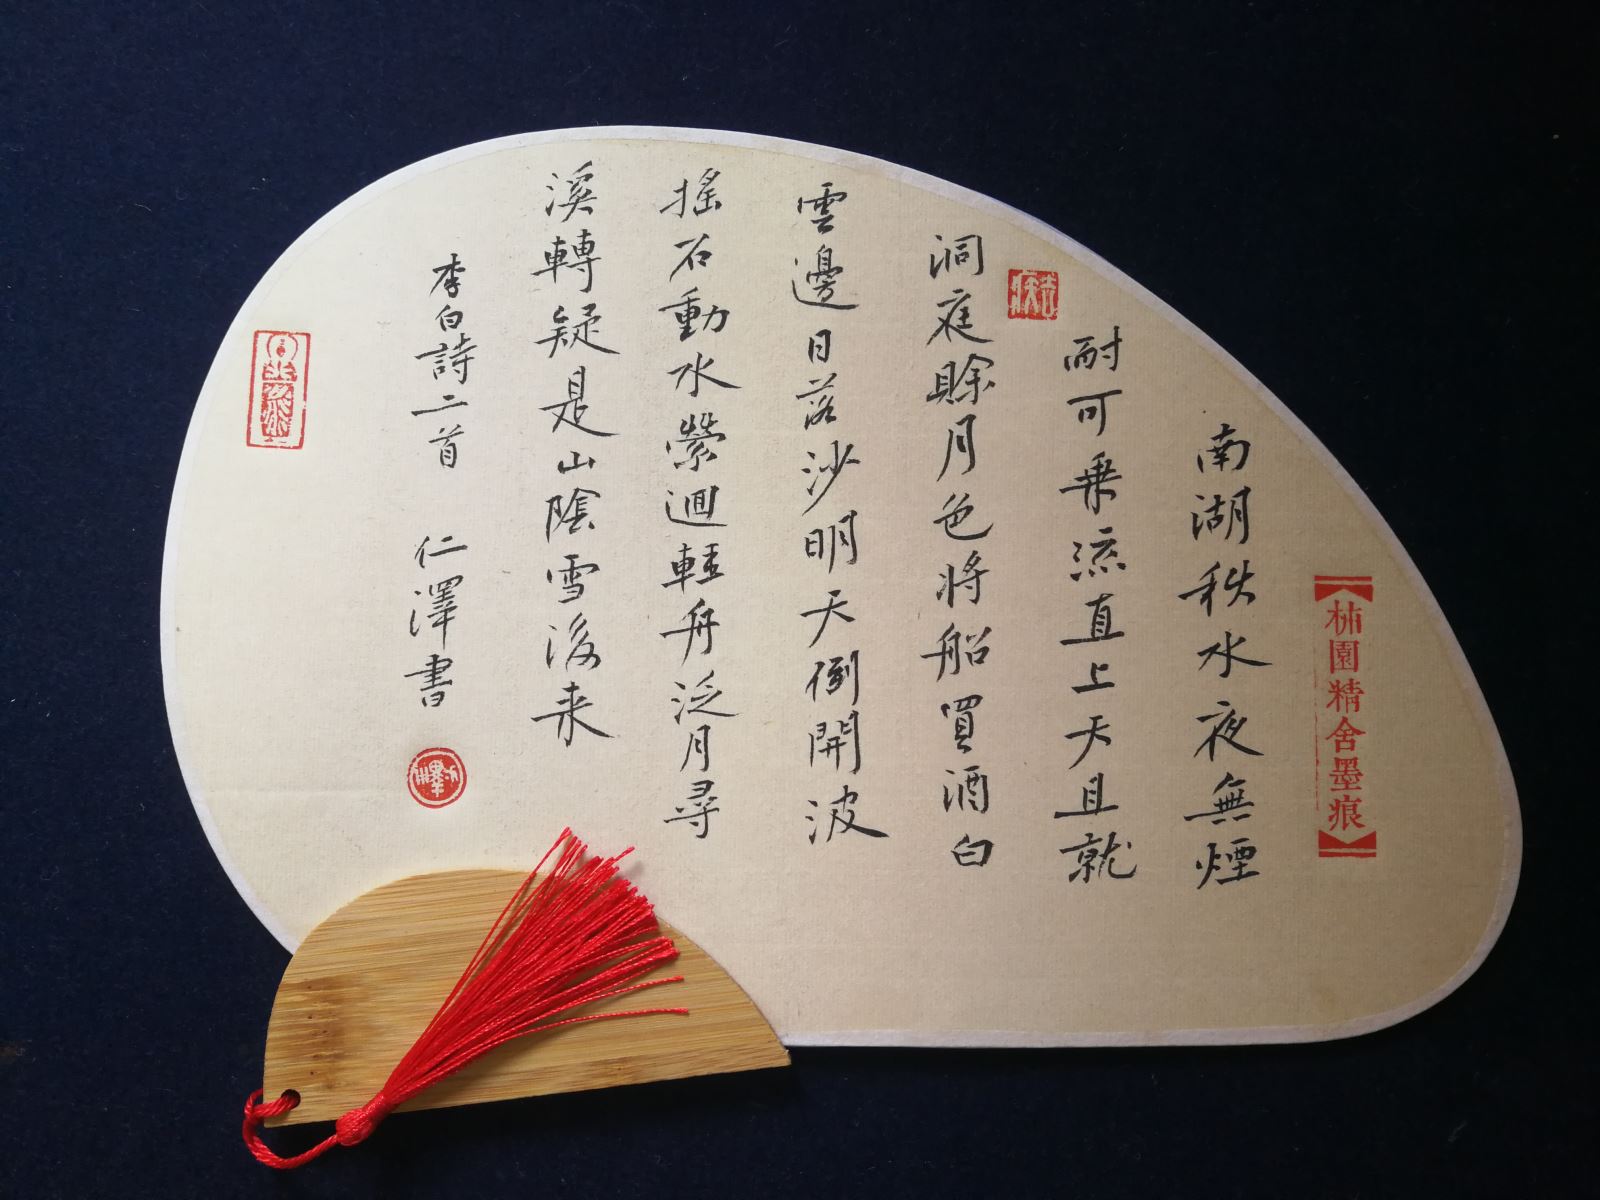 【柿園精舍墨痕】
南湖秋水夜無煙
耐可乘流直上天且就
洞庭賒月色將船買酒白
雲邊日落沙明天倒開波
搖石動水縈迴輕舟泛月尋
溪轉疑是山陰雪後来
李白詩二首 仁澤書